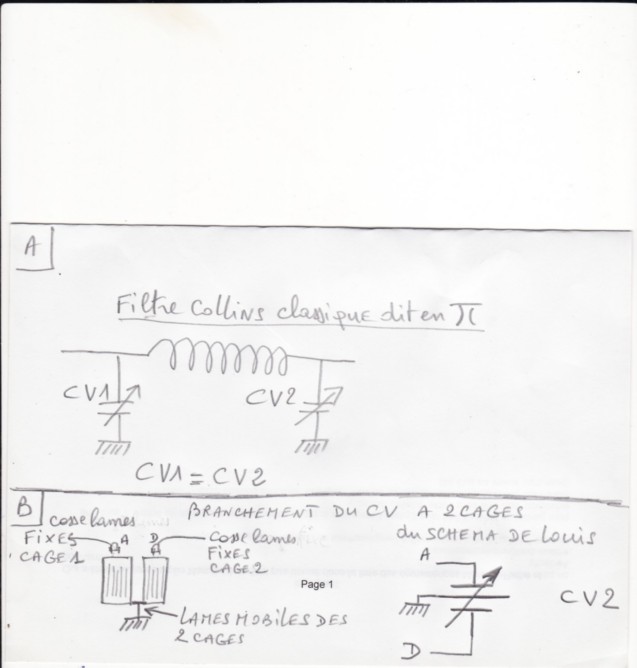 A
Filtre Collins classique dit en π
CV1
CV2
CV1 = CV2
B
BRANCHEMENT DU CV A 2 CAGES
du SCHEMA DE Louis
cosse lames
FIXES
CAGE 1
A
D
Cosse lames
FIXES
CAGE 2
Page 1
LAMES MOBILES DES
2 CAGES
A
CV2
D